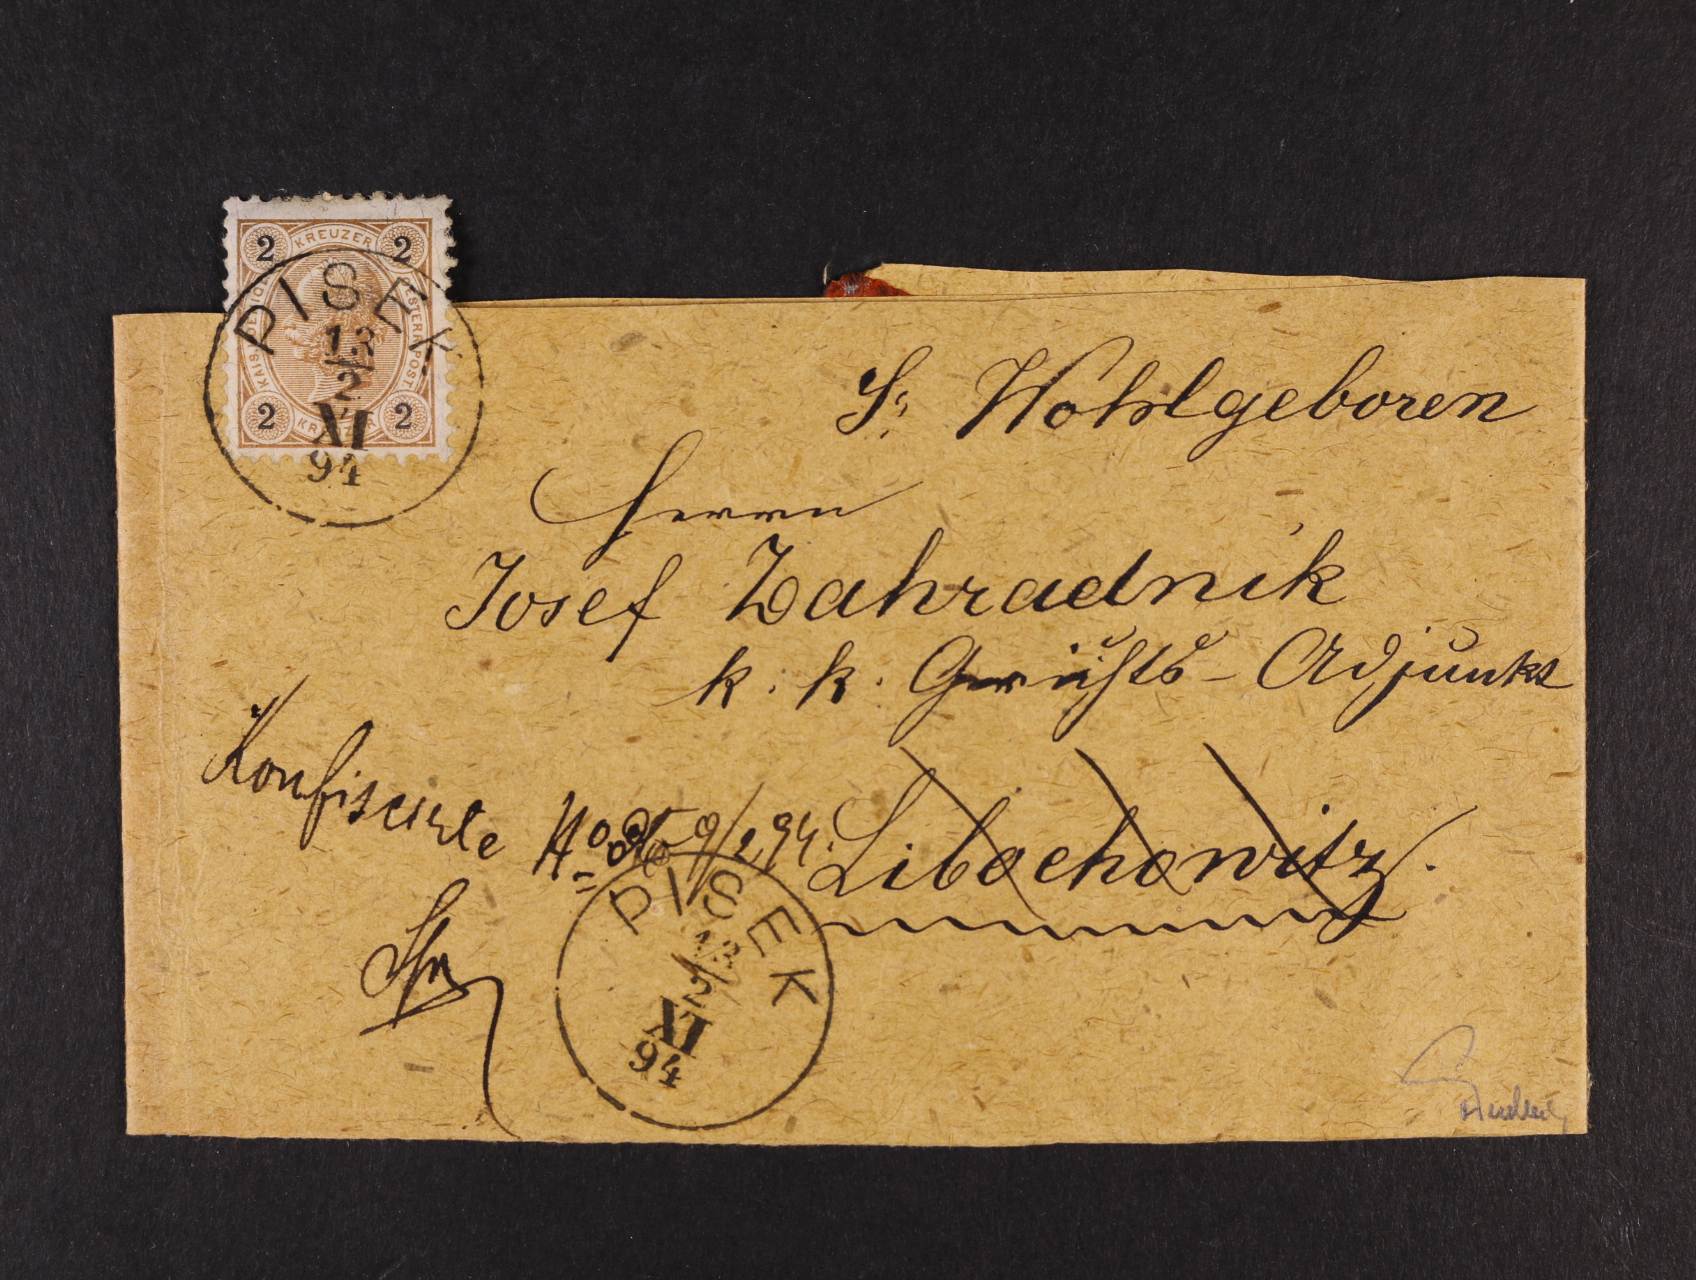 2 KREUZER 2
KAIS. KOENIGL. OESTERR. POST.
2 KREUZER 2
PISEK
12/2
XI
94
Sr Wohlgeboren
Herrn
Josef Zahradnik
k. k. Gerichts-Adjunkt
Libochowitz.
Konfiscirte No 9/2 94.
PISEK
12/2
XI
94